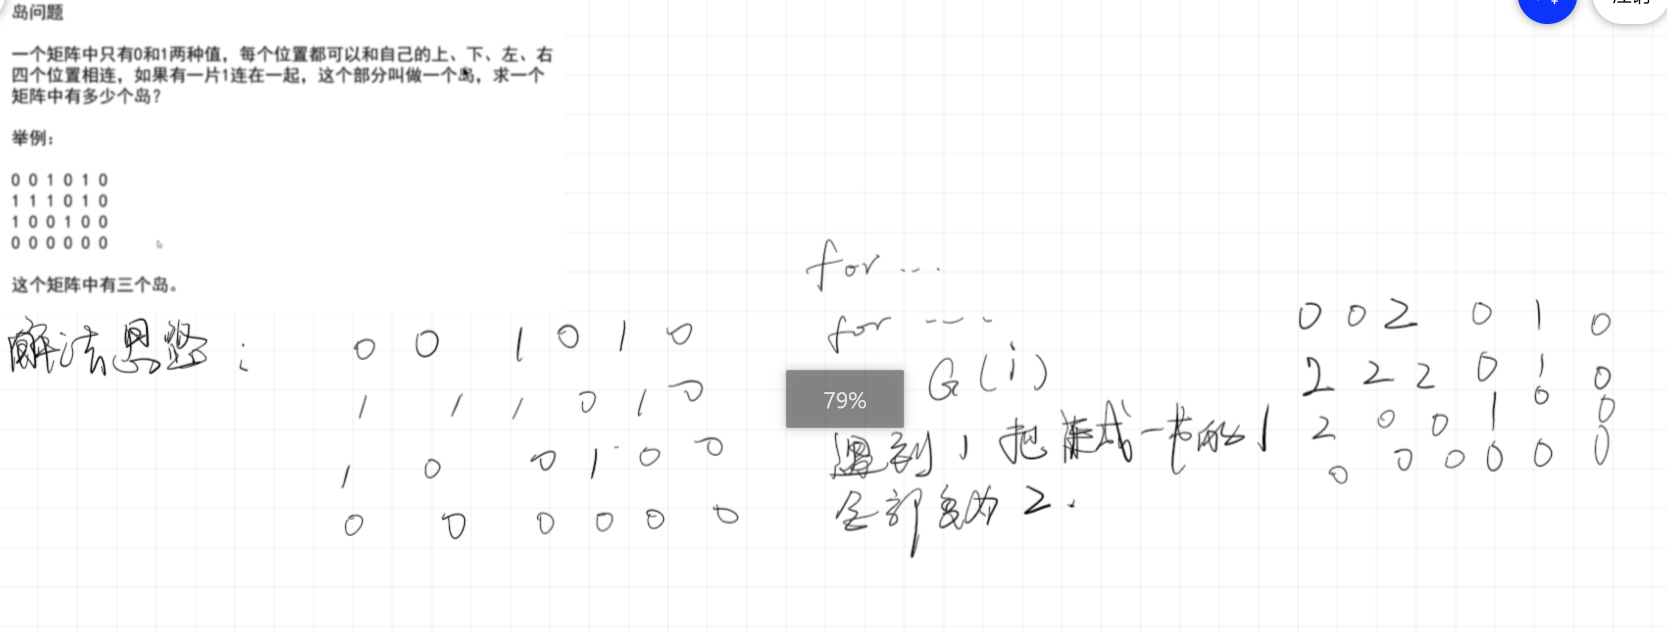 岛问题
一个矩阵中只有0和1两种值，每个位置都可以和自己的上、下、左、右
四个位置相连，如果有一片1连在一起，这个部分叫做一个岛，求一个
矩阵中有多少个岛？
举例：
0 0 1 0 1 0
1 1 1 0 1 0
1 0 0 1 0 0
0 0 0 0 0 0
这个矩阵中有三个岛。
解法思路：
0 0 1 0 1 0
1 1 1 0 1 0
1 0 0 1 0 0
0 0 0 0 0 0
for ...
for ...
G(i)
79%
遇到1把连成一片的1
全部变为2.
0 0 2 0 1 0
2 2 2 0 1 0
2 0 0 1 0 0
0 0 0 0 0 0